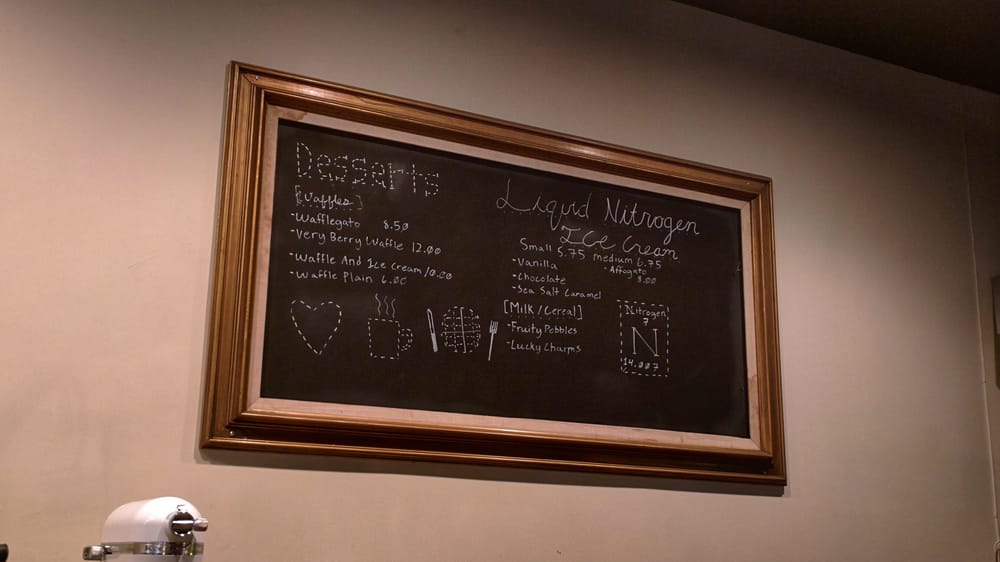 Desserts
[Waffles]
-Wafflegato 8.50
-Very Berry Waffle 12.00
-Waffle And Ice Cream 10.00
-Waffle Plain 6.00
Liquid Nitrogen
Ice Cream
Small 5.75 medium 6.75
-Vanilla
-Affogato
8.00
-Chocolate
-Sea Salt Caramel
[Milk/Cereal]
-Fruity Pebbles
-Lucky Charms
Nitrogen
7
N
14.007